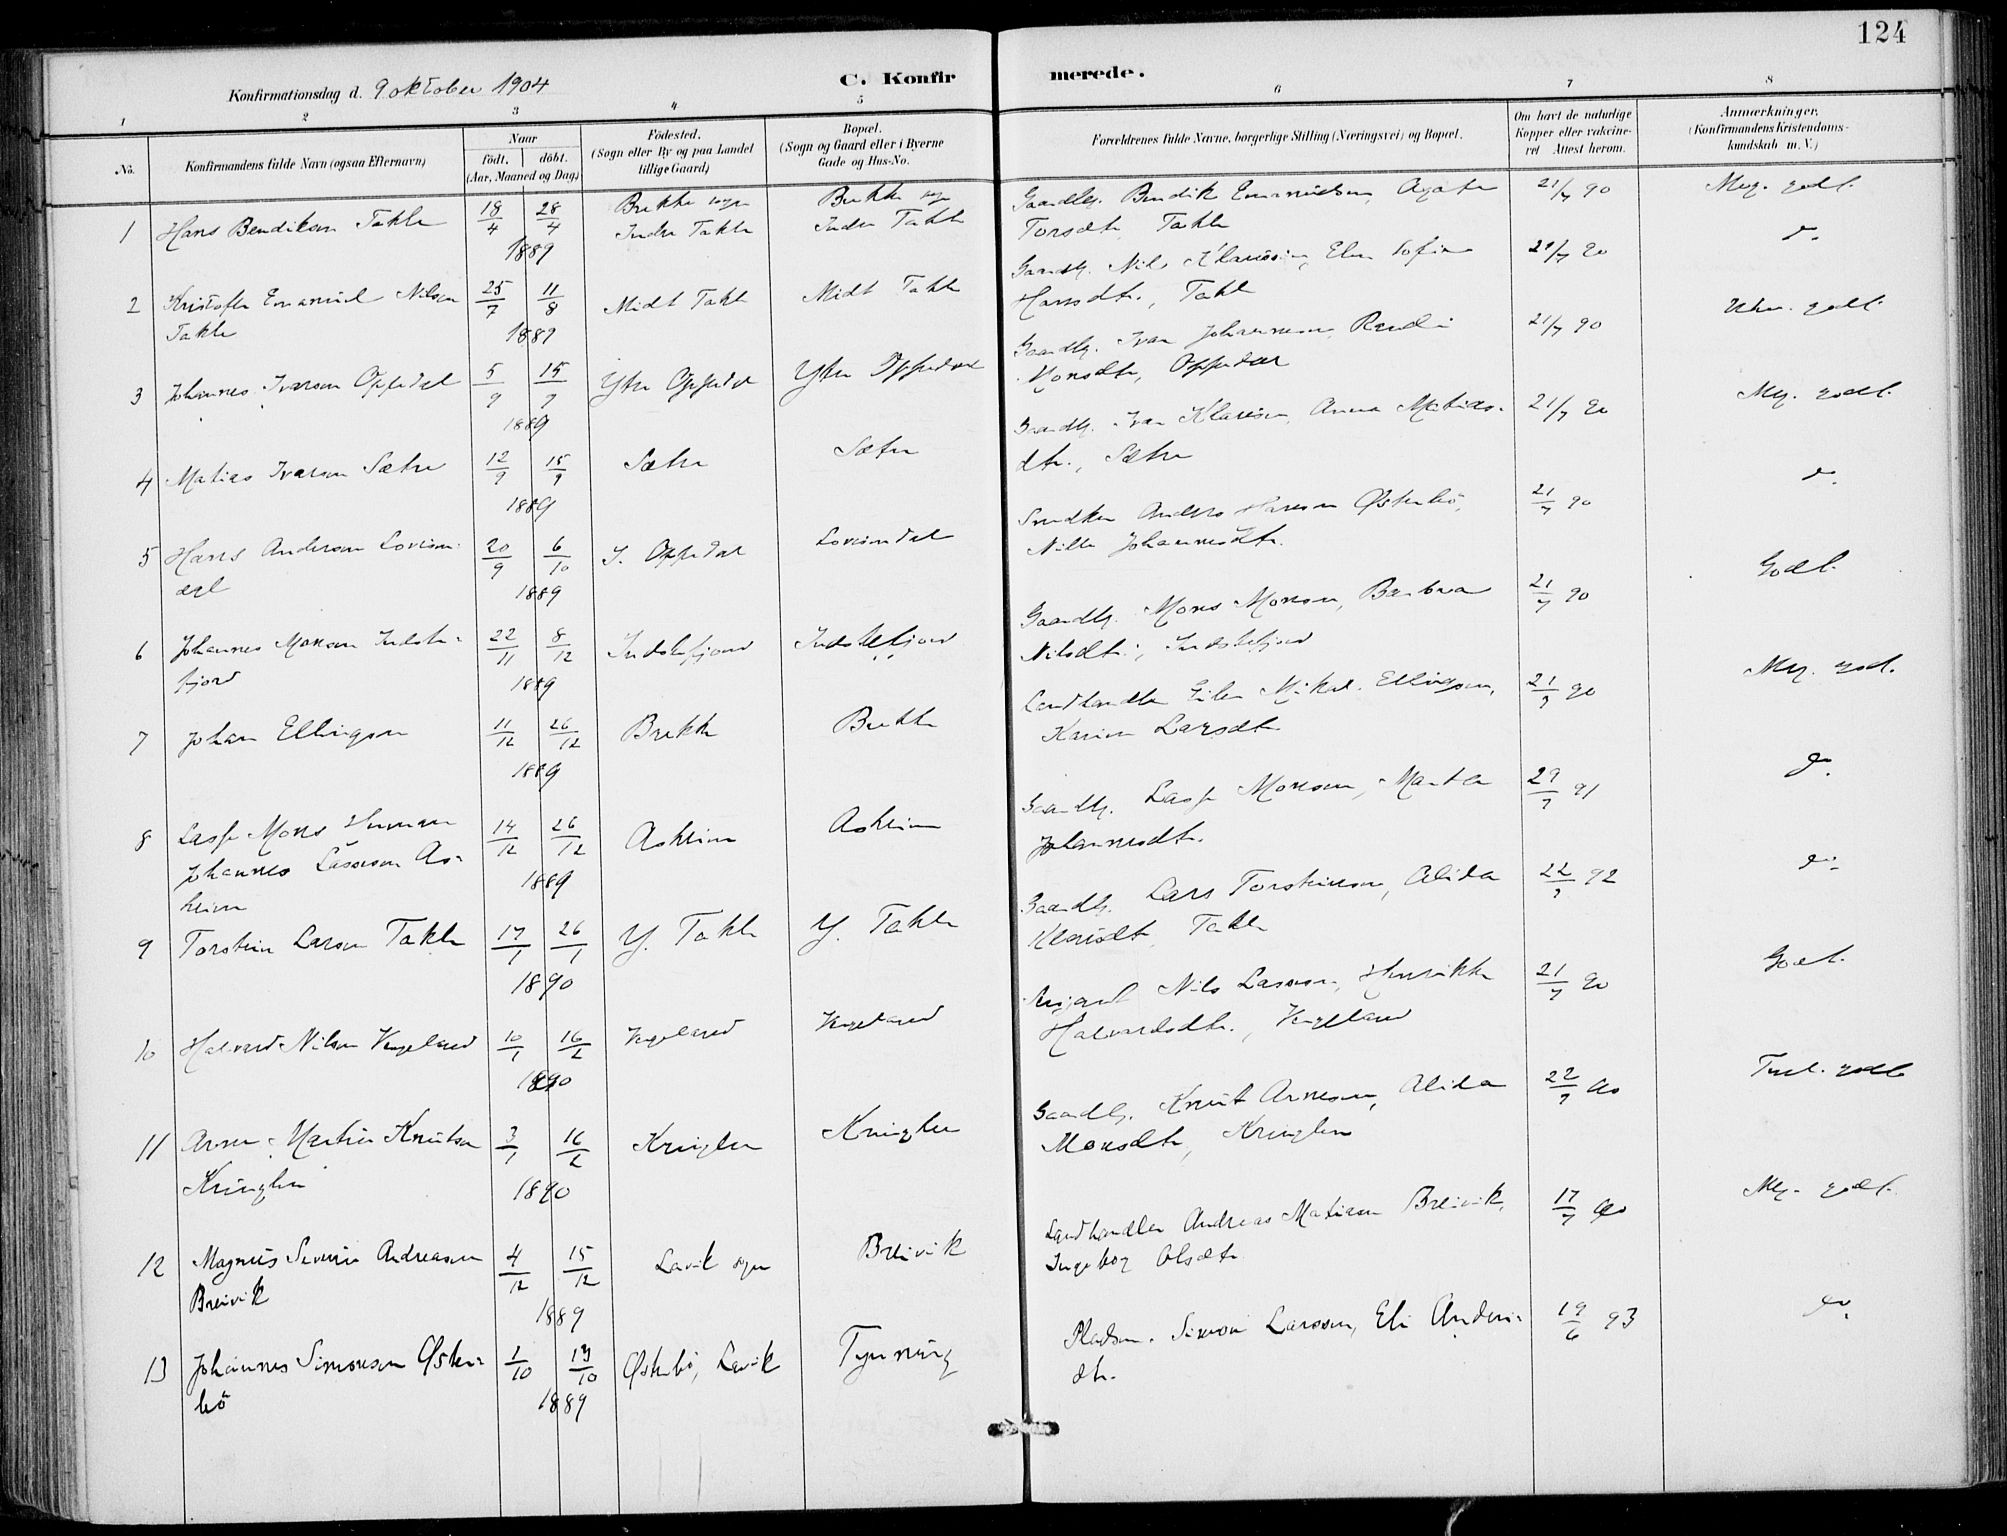 124
Konfirmationsdag d. 9 oktober 1904
C. Konfirmerede.
1 2 3 4 5 6 7 8
No.
Konfirmandens fulde Navn (ogsaa Efternavn)
Naar
födt. | döbt.
(Aar, Maaned og Dag)
Födested.
(Sogn eller By og paa Landet
tillige Gaard)
Bopæl.
(Sogn og Gaard eller i Byerne
Gade og Hus-No.
Forældrenes fulde Navne, borgerlige Stilling (Næringsvei) og Bopæl.
Om havt de naturlige
Kopper eller vakcine-
ret Attest herom.
Anmærkninger.
(Konfirmandens Kristendoms-
kundskab m. V.)
1 Hans Bendikson Takle 18/4 28/4 1889 Brekke sogn Indre Takle Brekke sogn Indre Takle Gaardbr. Bendik Emanuelson, Agate
Torsdtr, Takle 21/7 90 Meg. godt.
2 Kristofer Emanuel Nilson
Takle 25/7 11/8 1889 Midt Takle Midt Takle Gaardbr. Nils Klausson, Elen Sofie
Hansdtr., Takle 21/7 90 do.
3 Johannes Ivarson Oppedal 5/9 15/9 1889 Ytre Oppedal Ytre Oppedal Gaardbr. Ivar Johanneson, Randi
Monsdtr, Oppedal 21/7 90 Ukm. godt.
4 Matias Ivarson Sætre 12/9 15/9 1889 Sætre Sætre Gaardbr. Ivar Klauson, Anna Matias-
dtr., Sætre 21/7 90 Meg. godt.
5 Hans Anderson Lovisen-
dal 20/9 6/10 1889 I. Oppedal Lovisendal Snedker Anders Hanson Østerbö,
Nille Johannesdtr. 21/7 90 do.
6 Johannes Monson Indste-
fjord 22/11 8/12 1889 Indstefjord Indstefjord Gaardbr. Mons Monson, Barbra
Nilsdtr., Indstefjord 21/7 90 Godt.
7 Johan Ellingson 11/12 26/12 1889 Brekke Brekke Landhandler Eiler Mikal Ellingson,
Karin Larsdtr 21/7 90 Meg. godt.
8 Lasse Mons Herman
Johannes Lasseson As-
heim 14/12 26/12 1889 Asheim Asheim Gaardbr. Lasse Monson, Marta
Johannesdtr. 29/7 91 do.
9 Torstein Larson Takle 17/1 26/1 1890 Y. Takle Y. Takle Gaardbr. Lars Torsteinson, Alida
Klausdtr, Takle 22/7 92 do.
10 Halvard Nilson Vengeland 10/1 16/2 1890 Vengeland Vengeland Nils Lasseson, Henrikke
Halvardsdtr., Vengeland 21/7 90 Godt.
11 Arne Martin Knutson
Kringlen 3/1 16/2 1890 Kringlen Kringlen Gaardbr. Knut Arneson, Alida
Monsdtr, Kringlen 22/7 90 godt
12 Magnus Severin Andreason
Breivik 4/12 15/12 1889 Lavik sogn Breivik Landhandler Andreas Matiason Breivik,
Ingeborg Olsdtr 17/7 90 Meg. godt.
13 Johannes Simonson Øster-
bö 1/10 13/10 1889 Østerbö, Lavik Tynning Pladsm. Simon Larsson, Eli Anders-
dtr. 19/6 93 do.